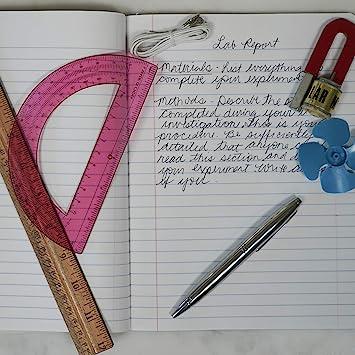 Lab Report
Materials - List everything
complete your experiment
Methods - Describe the
completed during your
investigation. this is your
procedure. Be sufficiently
detailed that anyone
read this section and
your experiment. Write as
if you
9
10
11
12